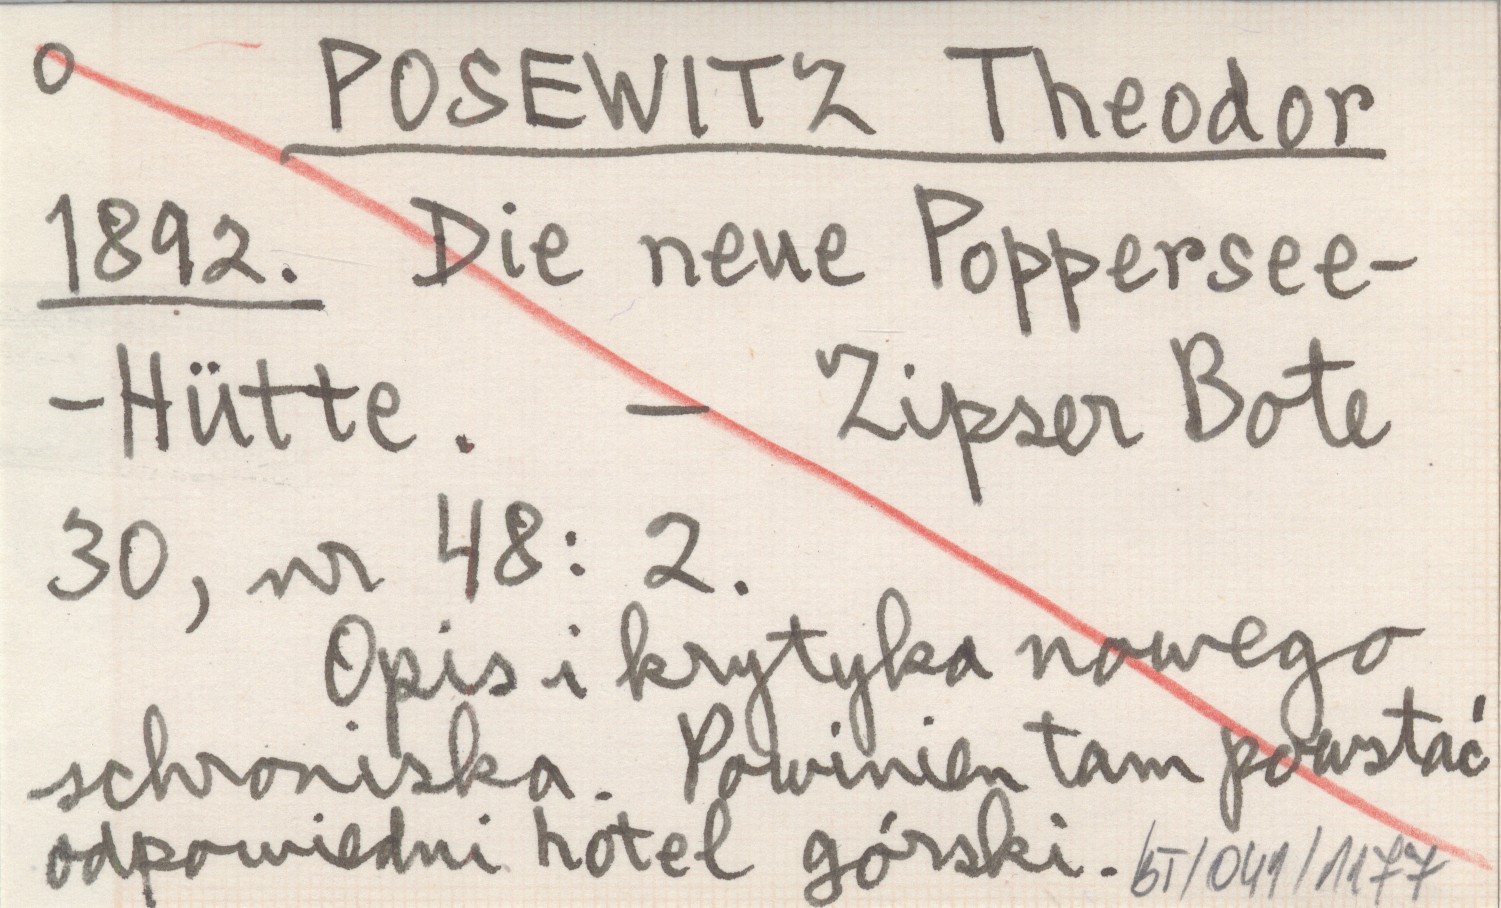 o POSEWITZ Theodor
1892. Die neue Poppersee-
-Hütte. — Zipser Bote
30, nr 48: 2.
Opis i krytyka nowego
schroniska. Powinien tam powstać
odpowiedni hotel górski.
bT/041/1177